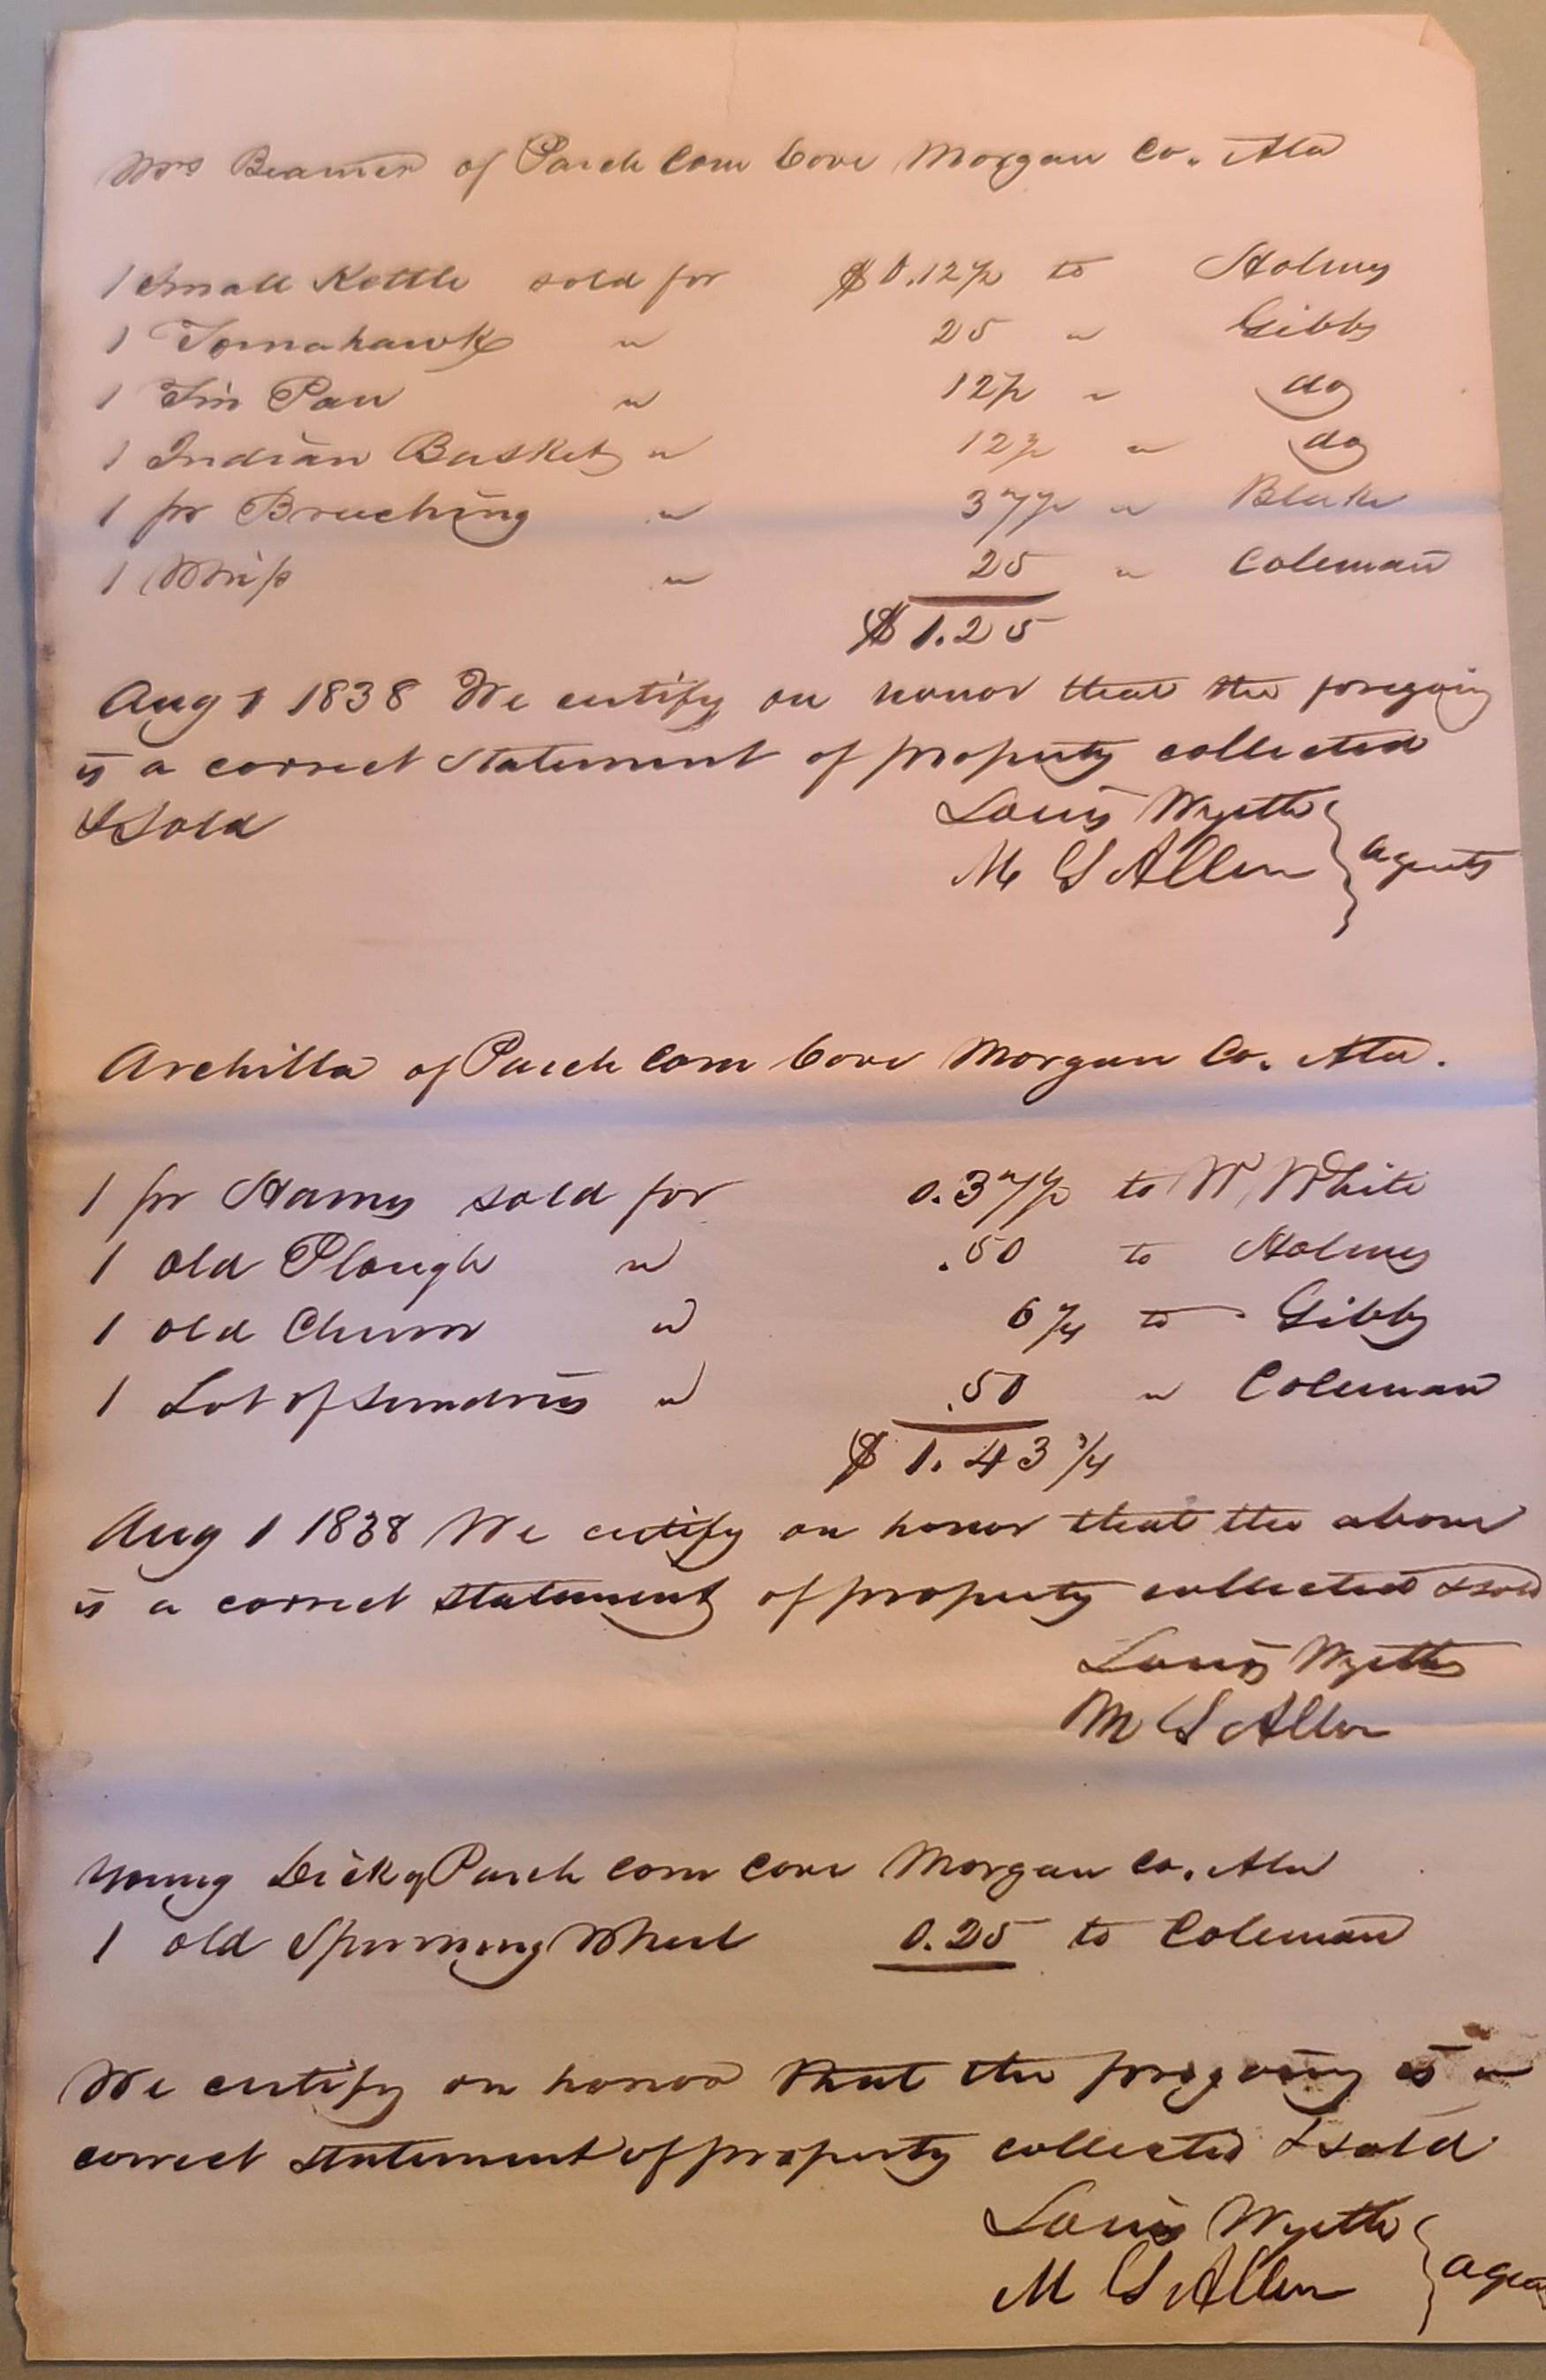 Mrs Beamer of Parch Corn Cove Morgan Co. Ala
1 Small Kettle sold for $0.12½ to Holmes
1 Tomahawk " 25 " Gibbs
1 Tin Pan " 12½ " do
1 Indian Basket " 12½ " do
1 pr Breeching " 37½ " Blake
1 Whip " 25 " Coleman
$1.25
Aug 1 1838 We certify on honor that the foregoing
is a correct statement of property collected
& Sold
Louis Wyeth
M S Allen } agents
Archilla of Parch Corn Cove Morgan Co. Ala.
1 pr Hames sold for 0.37½ to W. White
1 old Plough " .50 to Holmes
1 old Churn " 6¼ to Gibbs
1 Lot of sundries " .50 " Coleman
$1.43¾
Aug 1 1838 We certify on honor that the above
is a correct statement of property collected & sold
Louis Wyeth
M S Allen
Young Dick of Parch Corn Cove Morgan Co. Ala
1 old Spinning Wheel 0.25 to Coleman
We certify on honor that the foregoing is a
correct statement of property collected & sold
Louis Wyeth
M S Allen } agen